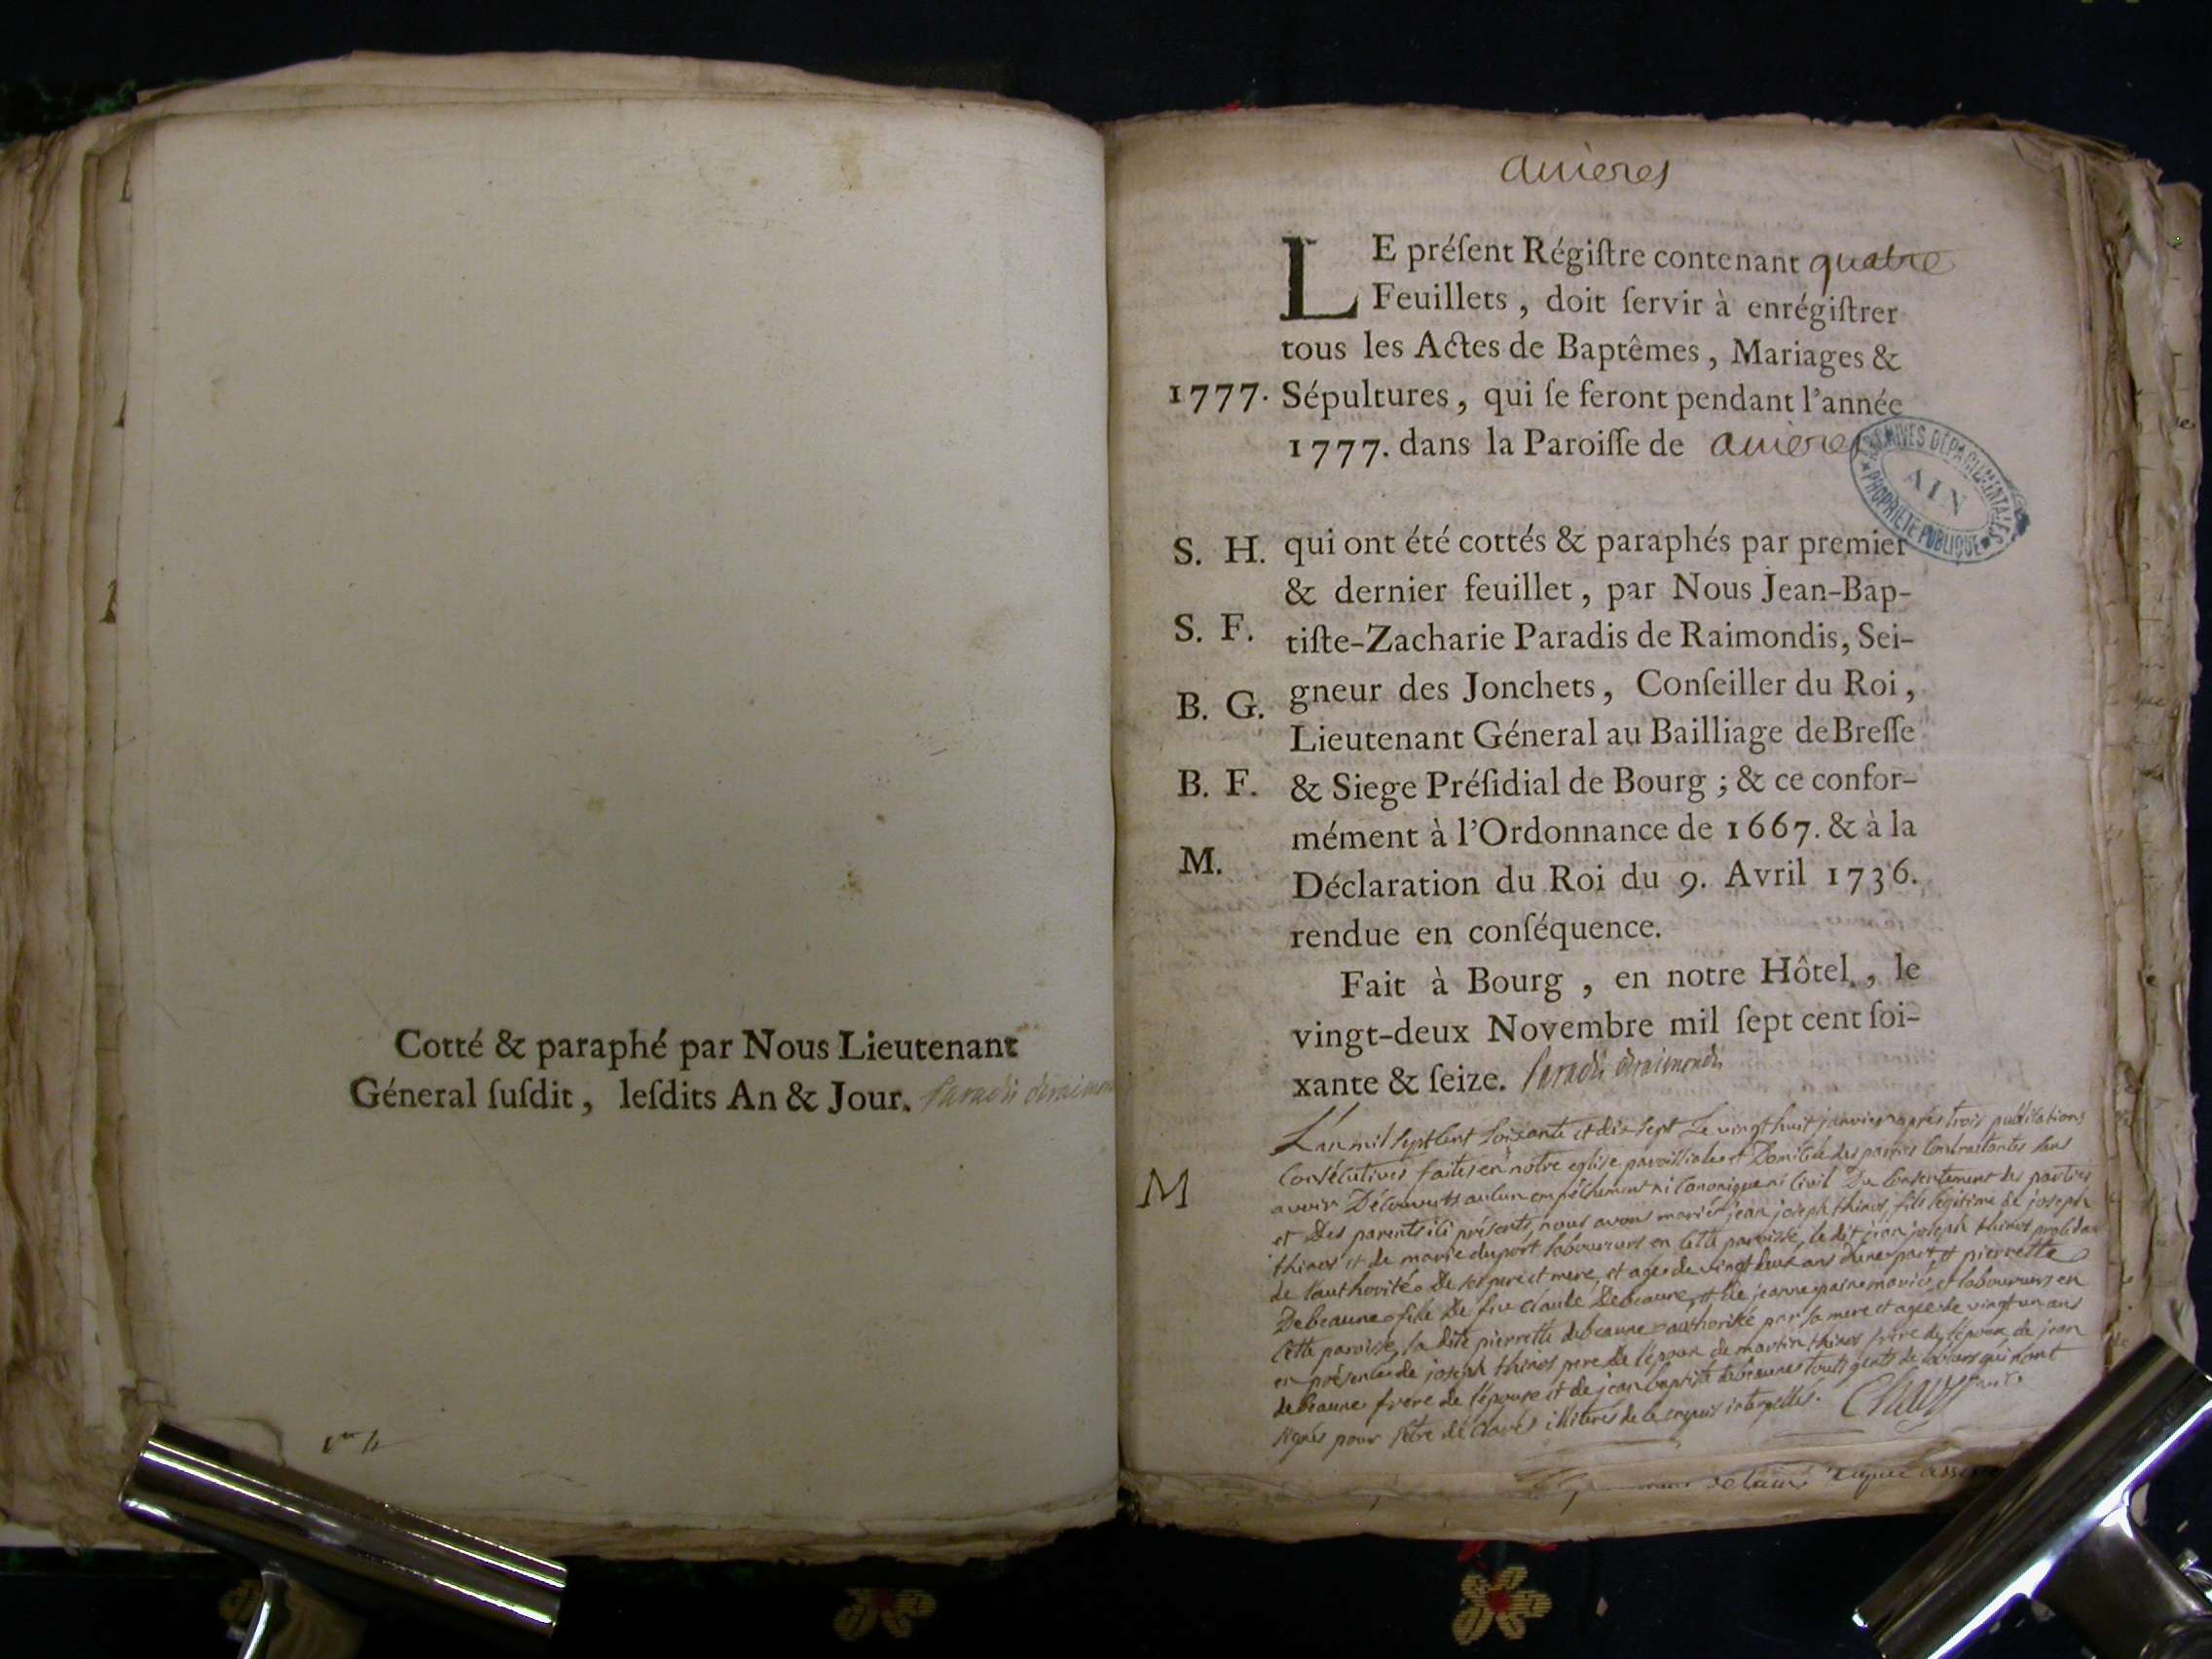 Cotté & paraphé par Nous Lieutenant
Géneral ſuſdit, leſdits An & Jour. Paradis deraimon
aſſieres
LE préſent Régiſtre contenant quatre
Feuillets, doit ſervir à enrégiſtrer
tous les Actes de Baptêmes, Mariages &
1777. Sépultures, qui ſe feront pendant l'année
1777. dans la Paroiſſe de aſſieres
ARCHIVES DÉPARTEMENTALES
AIN
PROPRIÉTÉ PUBLIQUE
S. H. qui ont été cottés & paraphés par premier
& dernier feuillet, par Nous Jean-Bap-
S. F. tiſte-Zacharie Paradis de Raimondis, Sei-
B. G. gneur des Jonchets, Conſeiller du Roi,
Lieutenant Géneral au Bailliage de Breſſe
B. F. & Siege Préſidial de Bourg ; & ce confor-
mément à l'Ordonnance de 1667. & à la
M. Déclaration du Roi du 9. Avril 1736.
rendue en conſéquence.
Fait à Bourg, en notre Hôtel, le
vingt-deux Novembre mil ſept cent ſoi-
xante & ſeize. Paradis deraimondis
L'an mil sept cent soixante et dix sept Le vingt huit janvier après trois publications
Consécutives faites en notre eglise paroissiale et Domicile des parties Contractantes sans
M avoir Découverts aucun empêchement ni Canonique ni Civil Du Consentement des parties
et Des parents ici présents, nous avons marié jean joseph thinos, fils légitime de joseph
thinos et de marie duport laboureurs en Cette paroisse, le dit jean joseph thinos
de l'authorité De ses pere et mere, et agé de vingt deux ans d'une part, et pierrette
Debeaune fille De feu claude Debeaune, et De jeanne mariés et laboureurs en
Cette paroisse, la dite pierrette debeaune authorisé par sa mere et agée de vingt un ans
en présence de joseph thinos pere De l'époux de martin thinos frère de l'époux de jean
debeaune frere de l'épouse et de jean baptiste debeaune touts gents de labeurs qui n'ont
signés pour s'être déclarés illiterés de ce enquis interpellés.